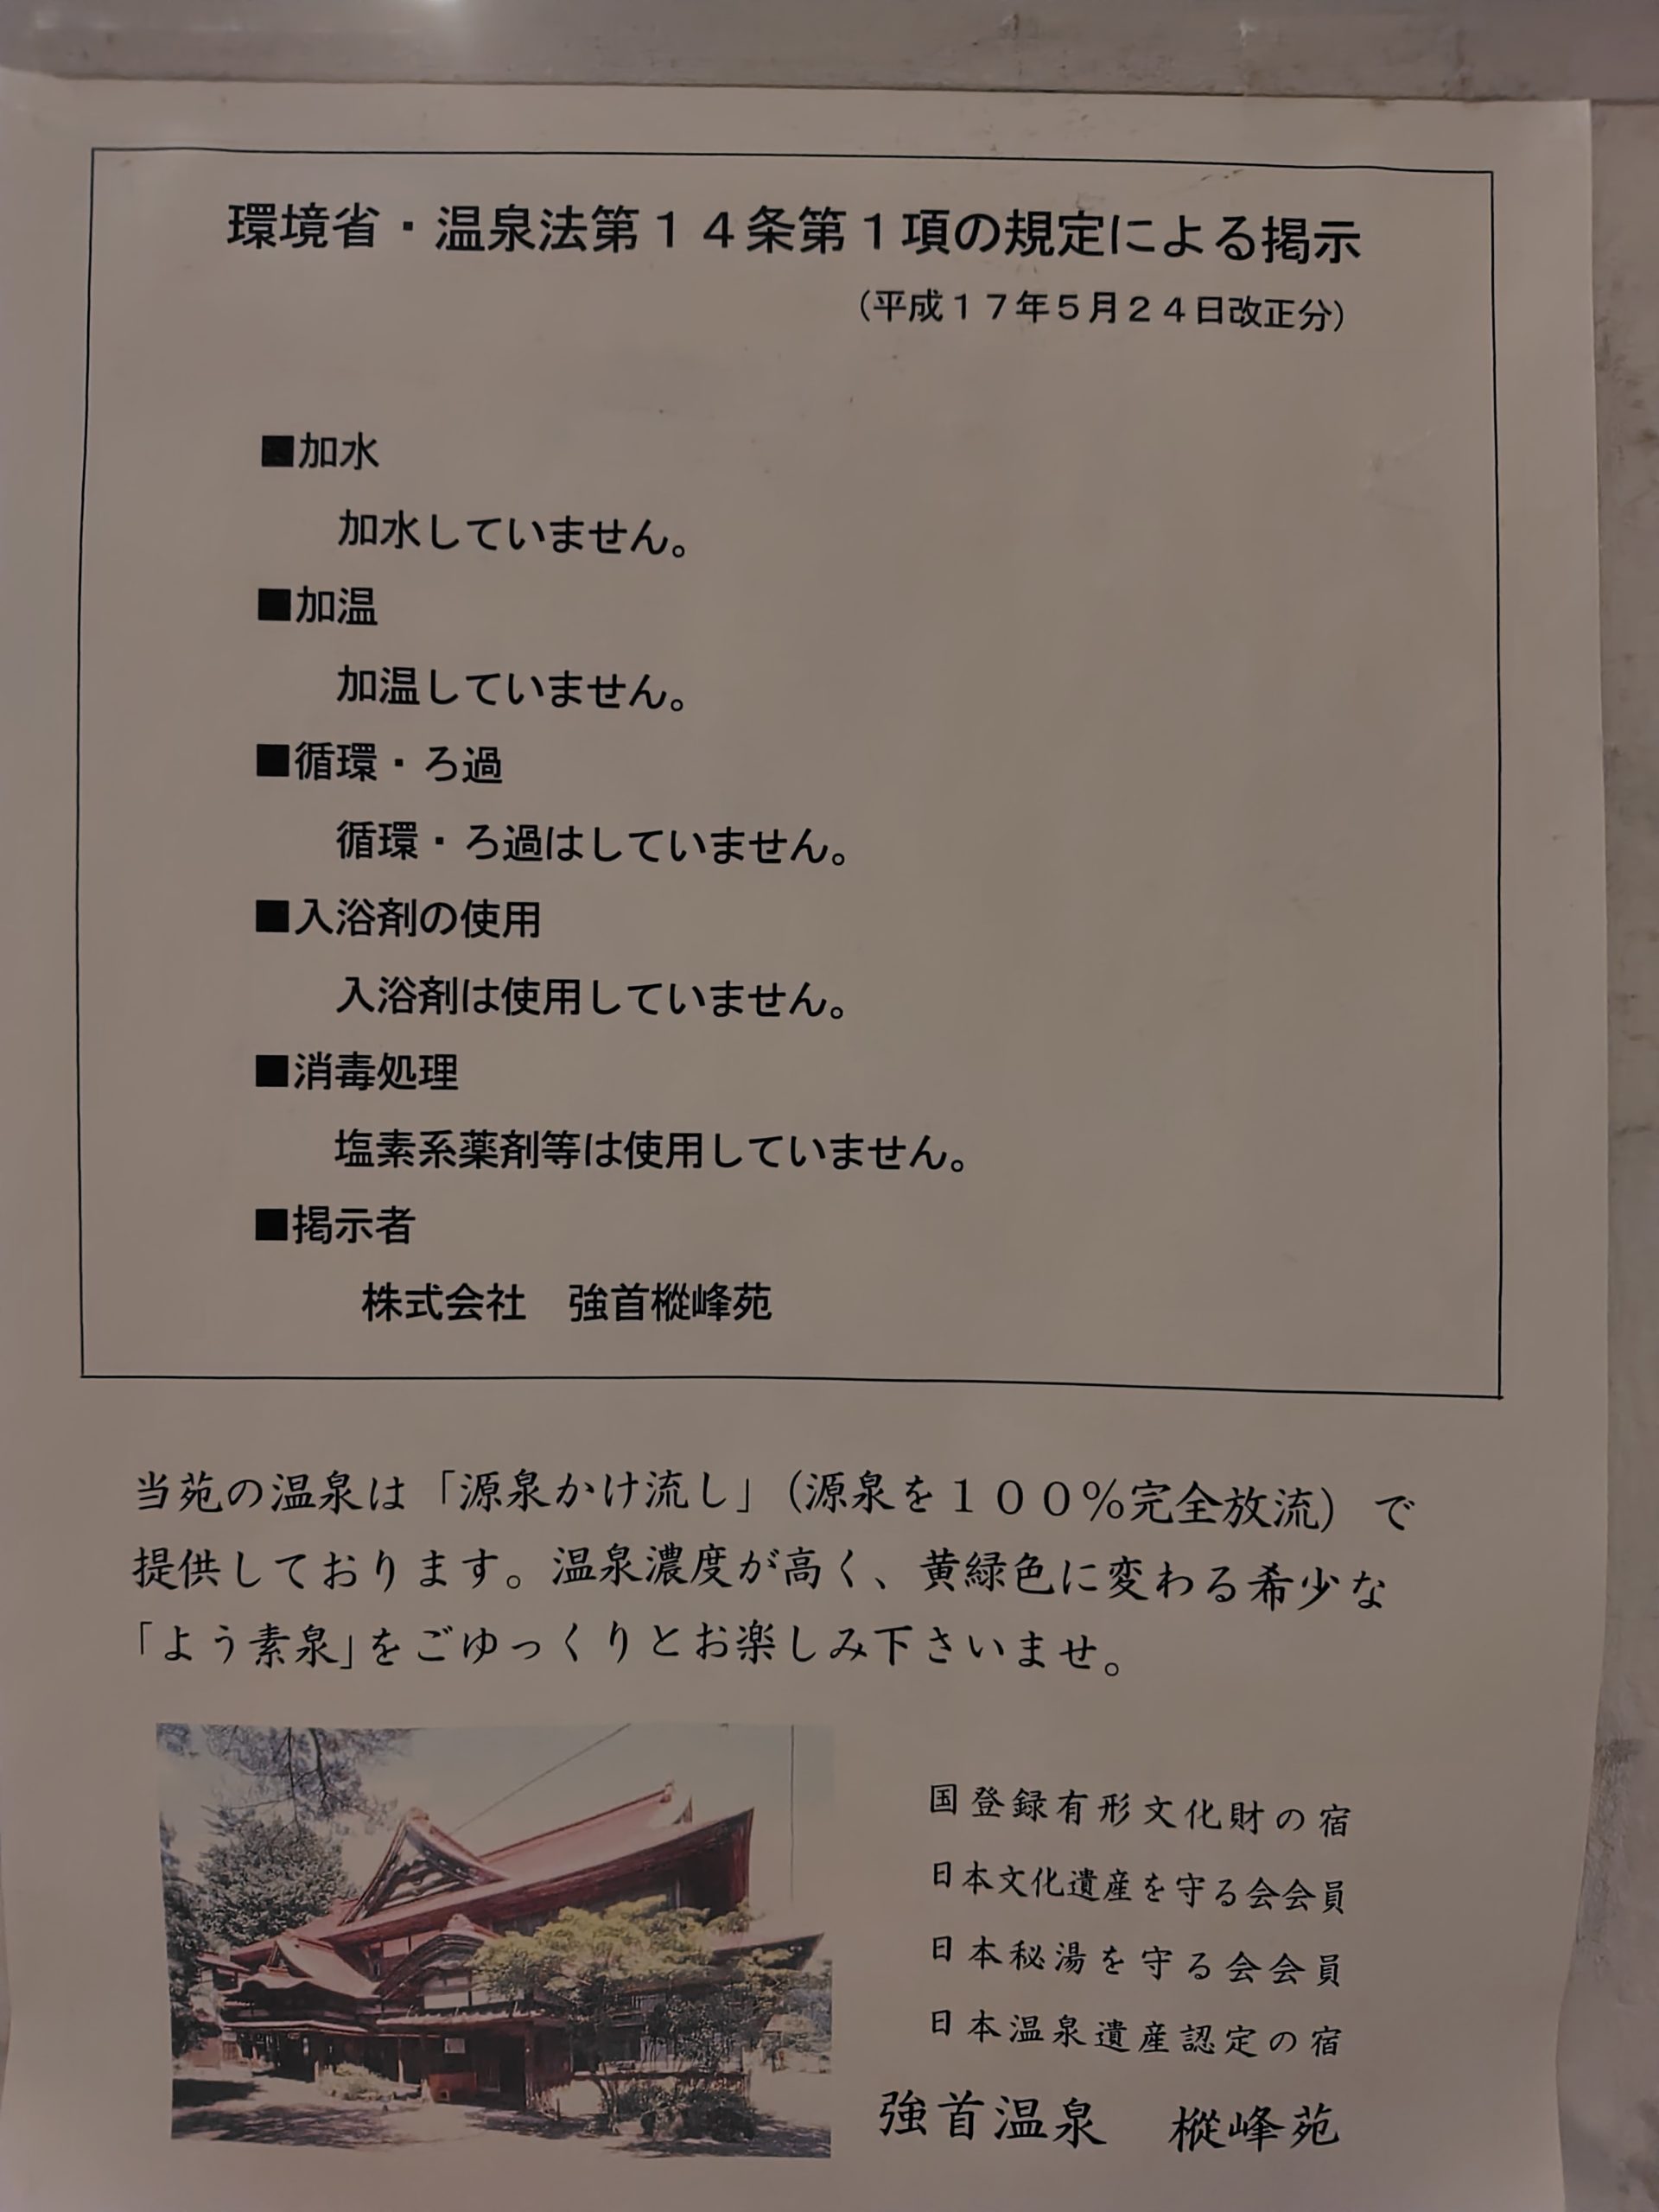 環境省・温泉法第１４条第１項の規定による掲示
（平成１７年５月２４日改正分）
■加水
加水していません。
■加温
加温していません。
■循環・ろ過
循環・ろ過はしていません。
■入浴剤の使用
入浴剤は使用していません。
■消毒処理
塩素系薬剤等は使用していません。
■掲示者
株式会社　強首樅峰苑
当苑の温泉は「源泉かけ流し」（源泉を１００％完全放流）で
提供しております。温泉濃度が高く、黄緑色に変わる希少な
「よう素泉」をごゆっくりとお楽しみ下さいませ。
国登録有形文化財の宿
日本文化遺産を守る会会員
日本秘湯を守る会会員
日本温泉遺産認定の宿
強首温泉　樅峰苑